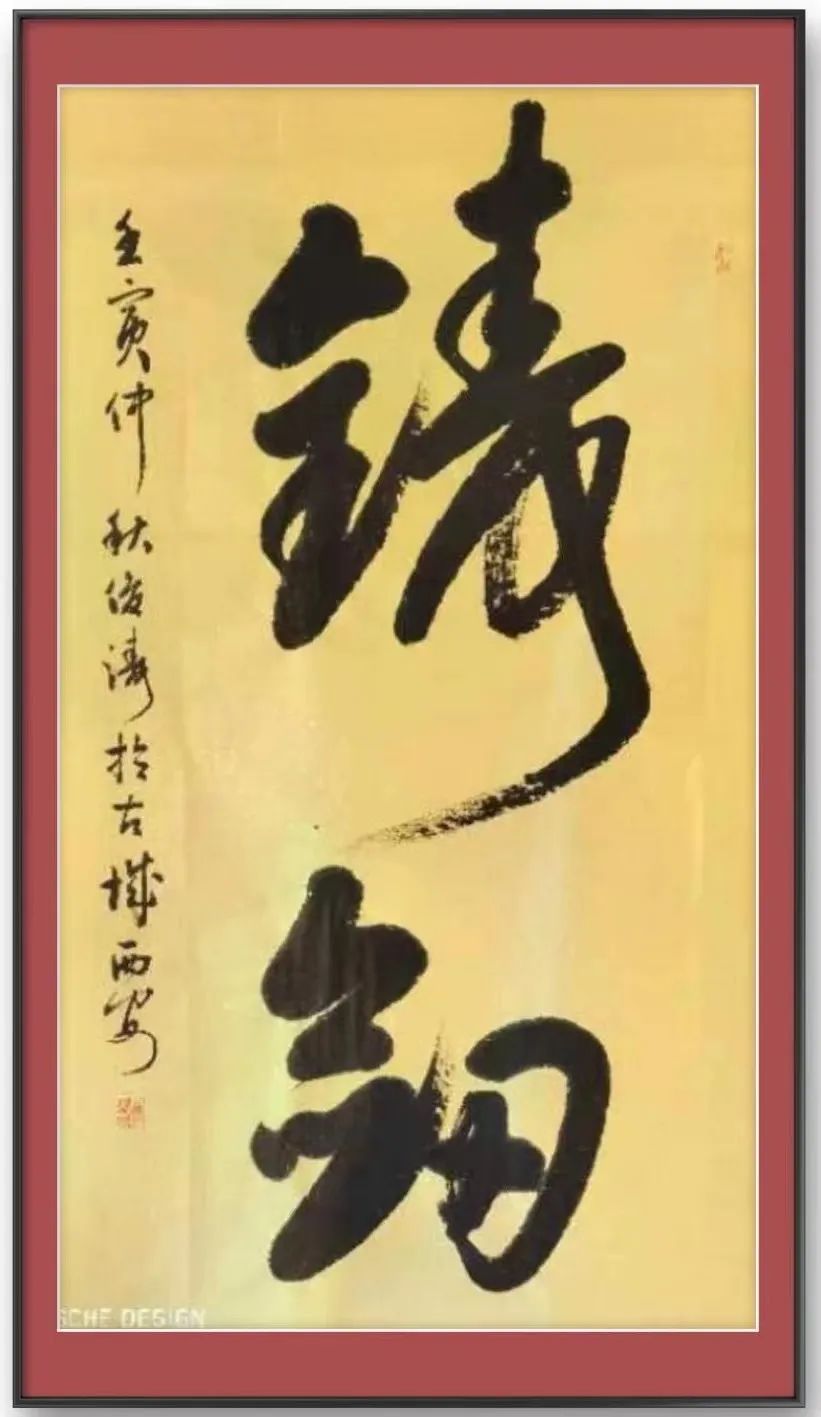 鑄劍
壬寅仲秋俊濤於古城西安
SCHE DESIGN